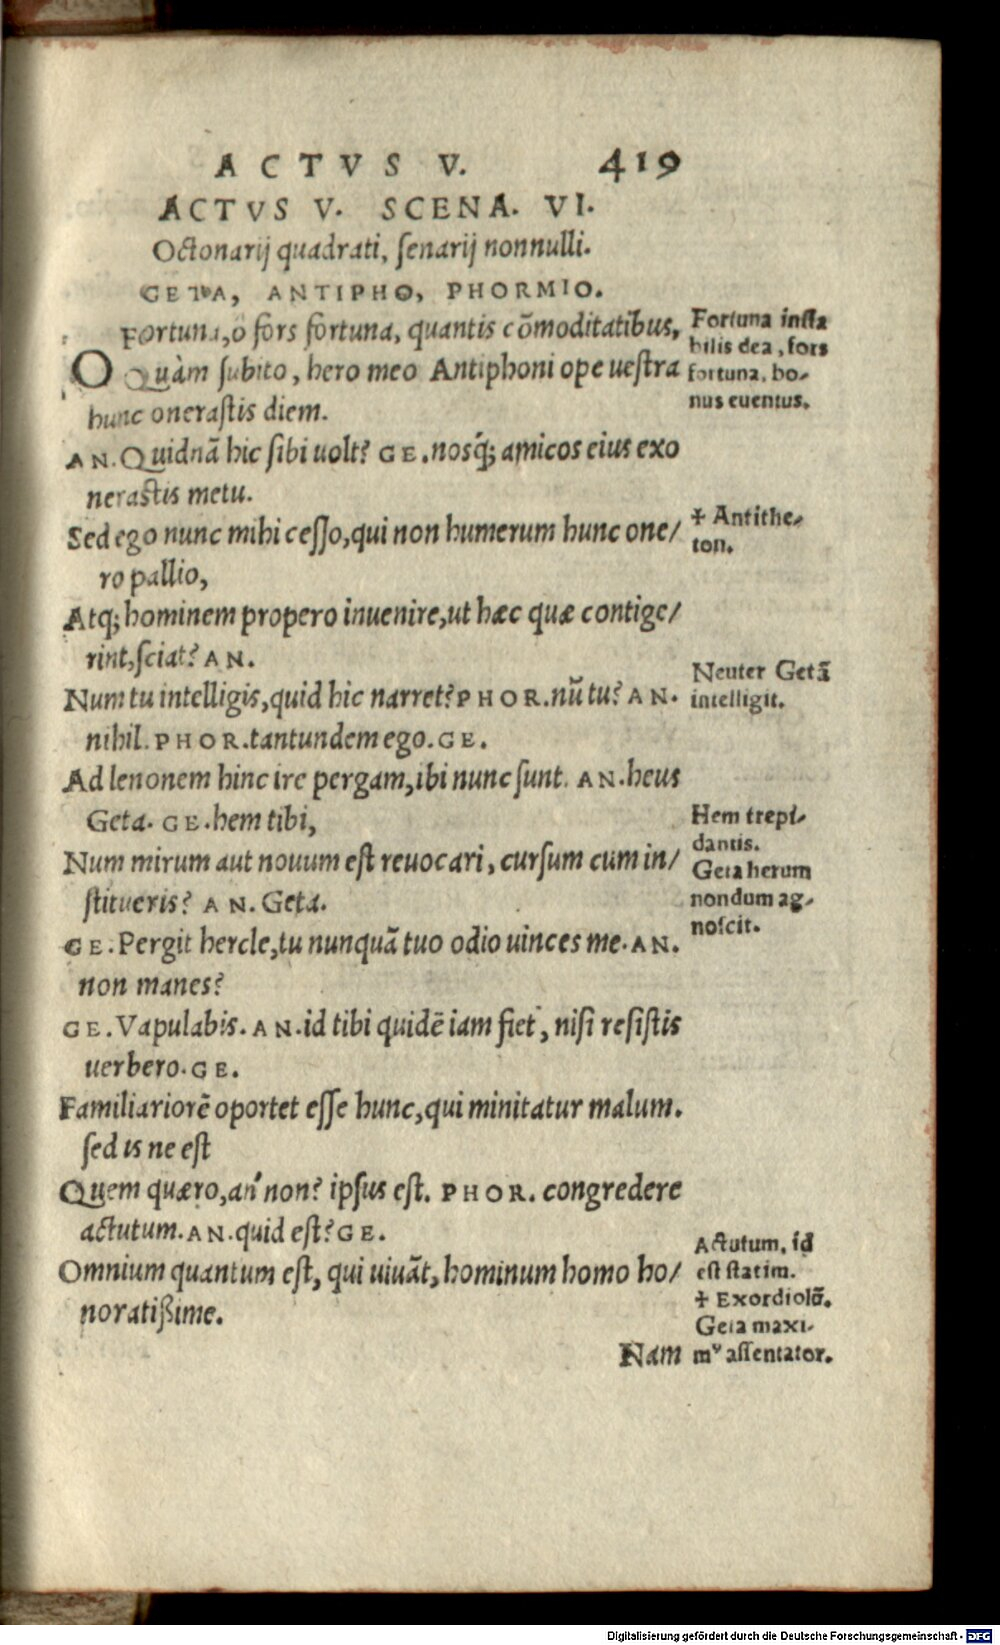 ACTVS V. 419
ACTVS V. SCENA. VI.
Octonarij quadrati, senarij nonnulli.
GETA, ANTIPHO, PHORMIO.
O Fortuna, ô fors fortuna, quantis cōmoditatibus,
Quàm subito, hero meo Antiphoni ope uestra
hunc onerastis diem.
AN. Quidnā hic sibi uolt? GE. nosq́; amicos eius exo
nerastis metu.
Sed ego nunc mihi cesso, qui non humerum hunc one/
ro pallio,
Atq; hominem propero inuenire, ut hæc quæ contige/
rint, sciat? AN.
Num tu intelligis, quid hic narret? PHOR. nū tu? AN.
nihil. PHOR. tantundem ego. GE.
Ad lenonem hinc ire pergam, ibi nunc sunt. AN. heus
Geta. GE. hem tibi,
Num mirum aut nouum est reuocari, cursum cum in/
stitueris? AN. Geta.
GE. Pergit hercle, tu nunquā tuo odio uinces me. AN.
non manes?
GE. Vapulabis. AN. id tibi quidē iam fiet, nisi resistis
uerbero. GE.
Familiariorē oportet esse hunc, qui minitatur malum.
sed is ne est
Quem quæro, an' non? ipsus est. PHOR. congredere
actutum. AN. quid est? GE.
Omnium quantum est, qui uiuāt, hominum homo ho/
noratißime.
Nam
Fortuna insta
bilis dea, fors
fortuna, bo-
nus euentus.
+ Antithe-
ton.
Neuter Getā
intelligit.
Hem trepi-
dantis.
Geta herum
nondum ag-
noscit.
Actutum, id
est statim.
+ Exordiolū.
Geta maxi-
mꝰ assentator.
Digitalisierung gefördert durch die Deutsche Forschungsgemeinschaft - DFG